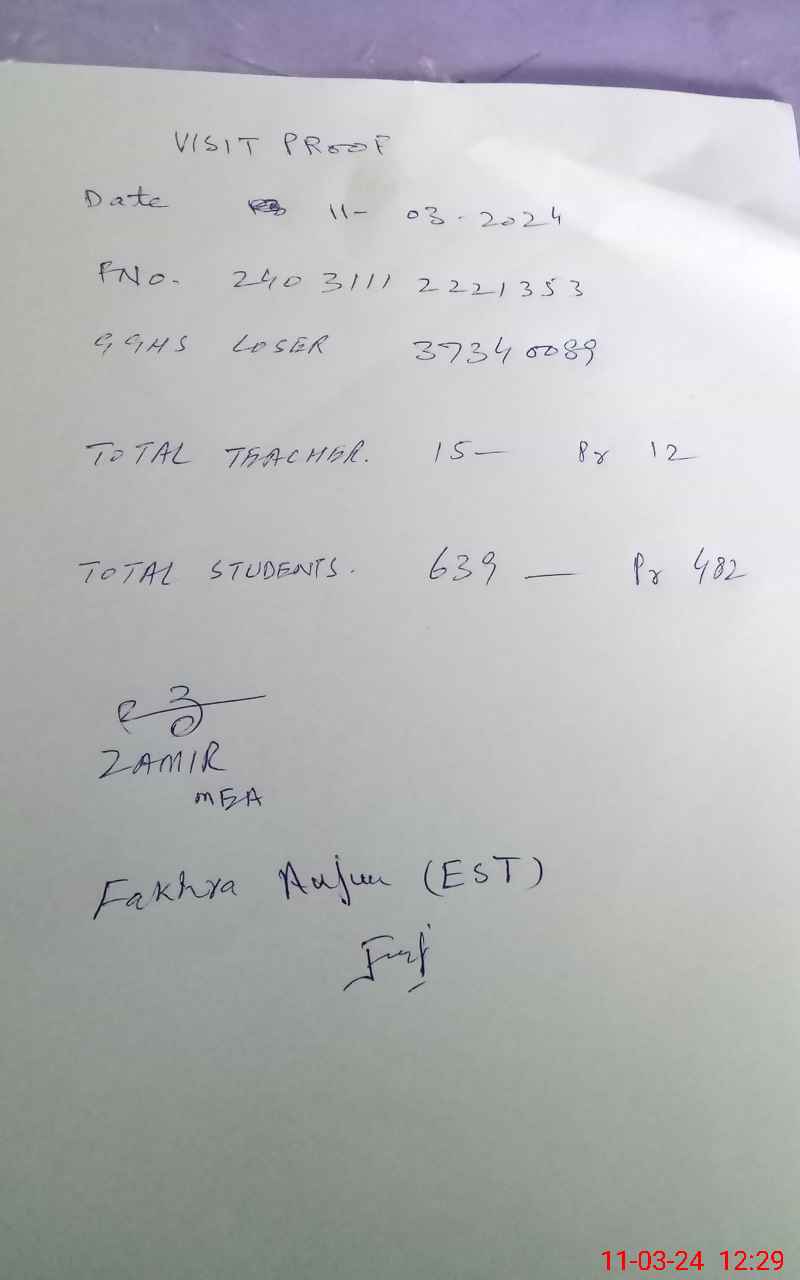 VISIT PROOF
Date 11- 03-2024
FNo. 2403111 2221353
GGHS LOSER 37340089
TOTAL TEACHER. 15— Pr 12
TOTAL STUDENTS. 639 — Pr 482
ZAMIR
MEA
Fakhra Anjum (EST)
11-03-24 12:29